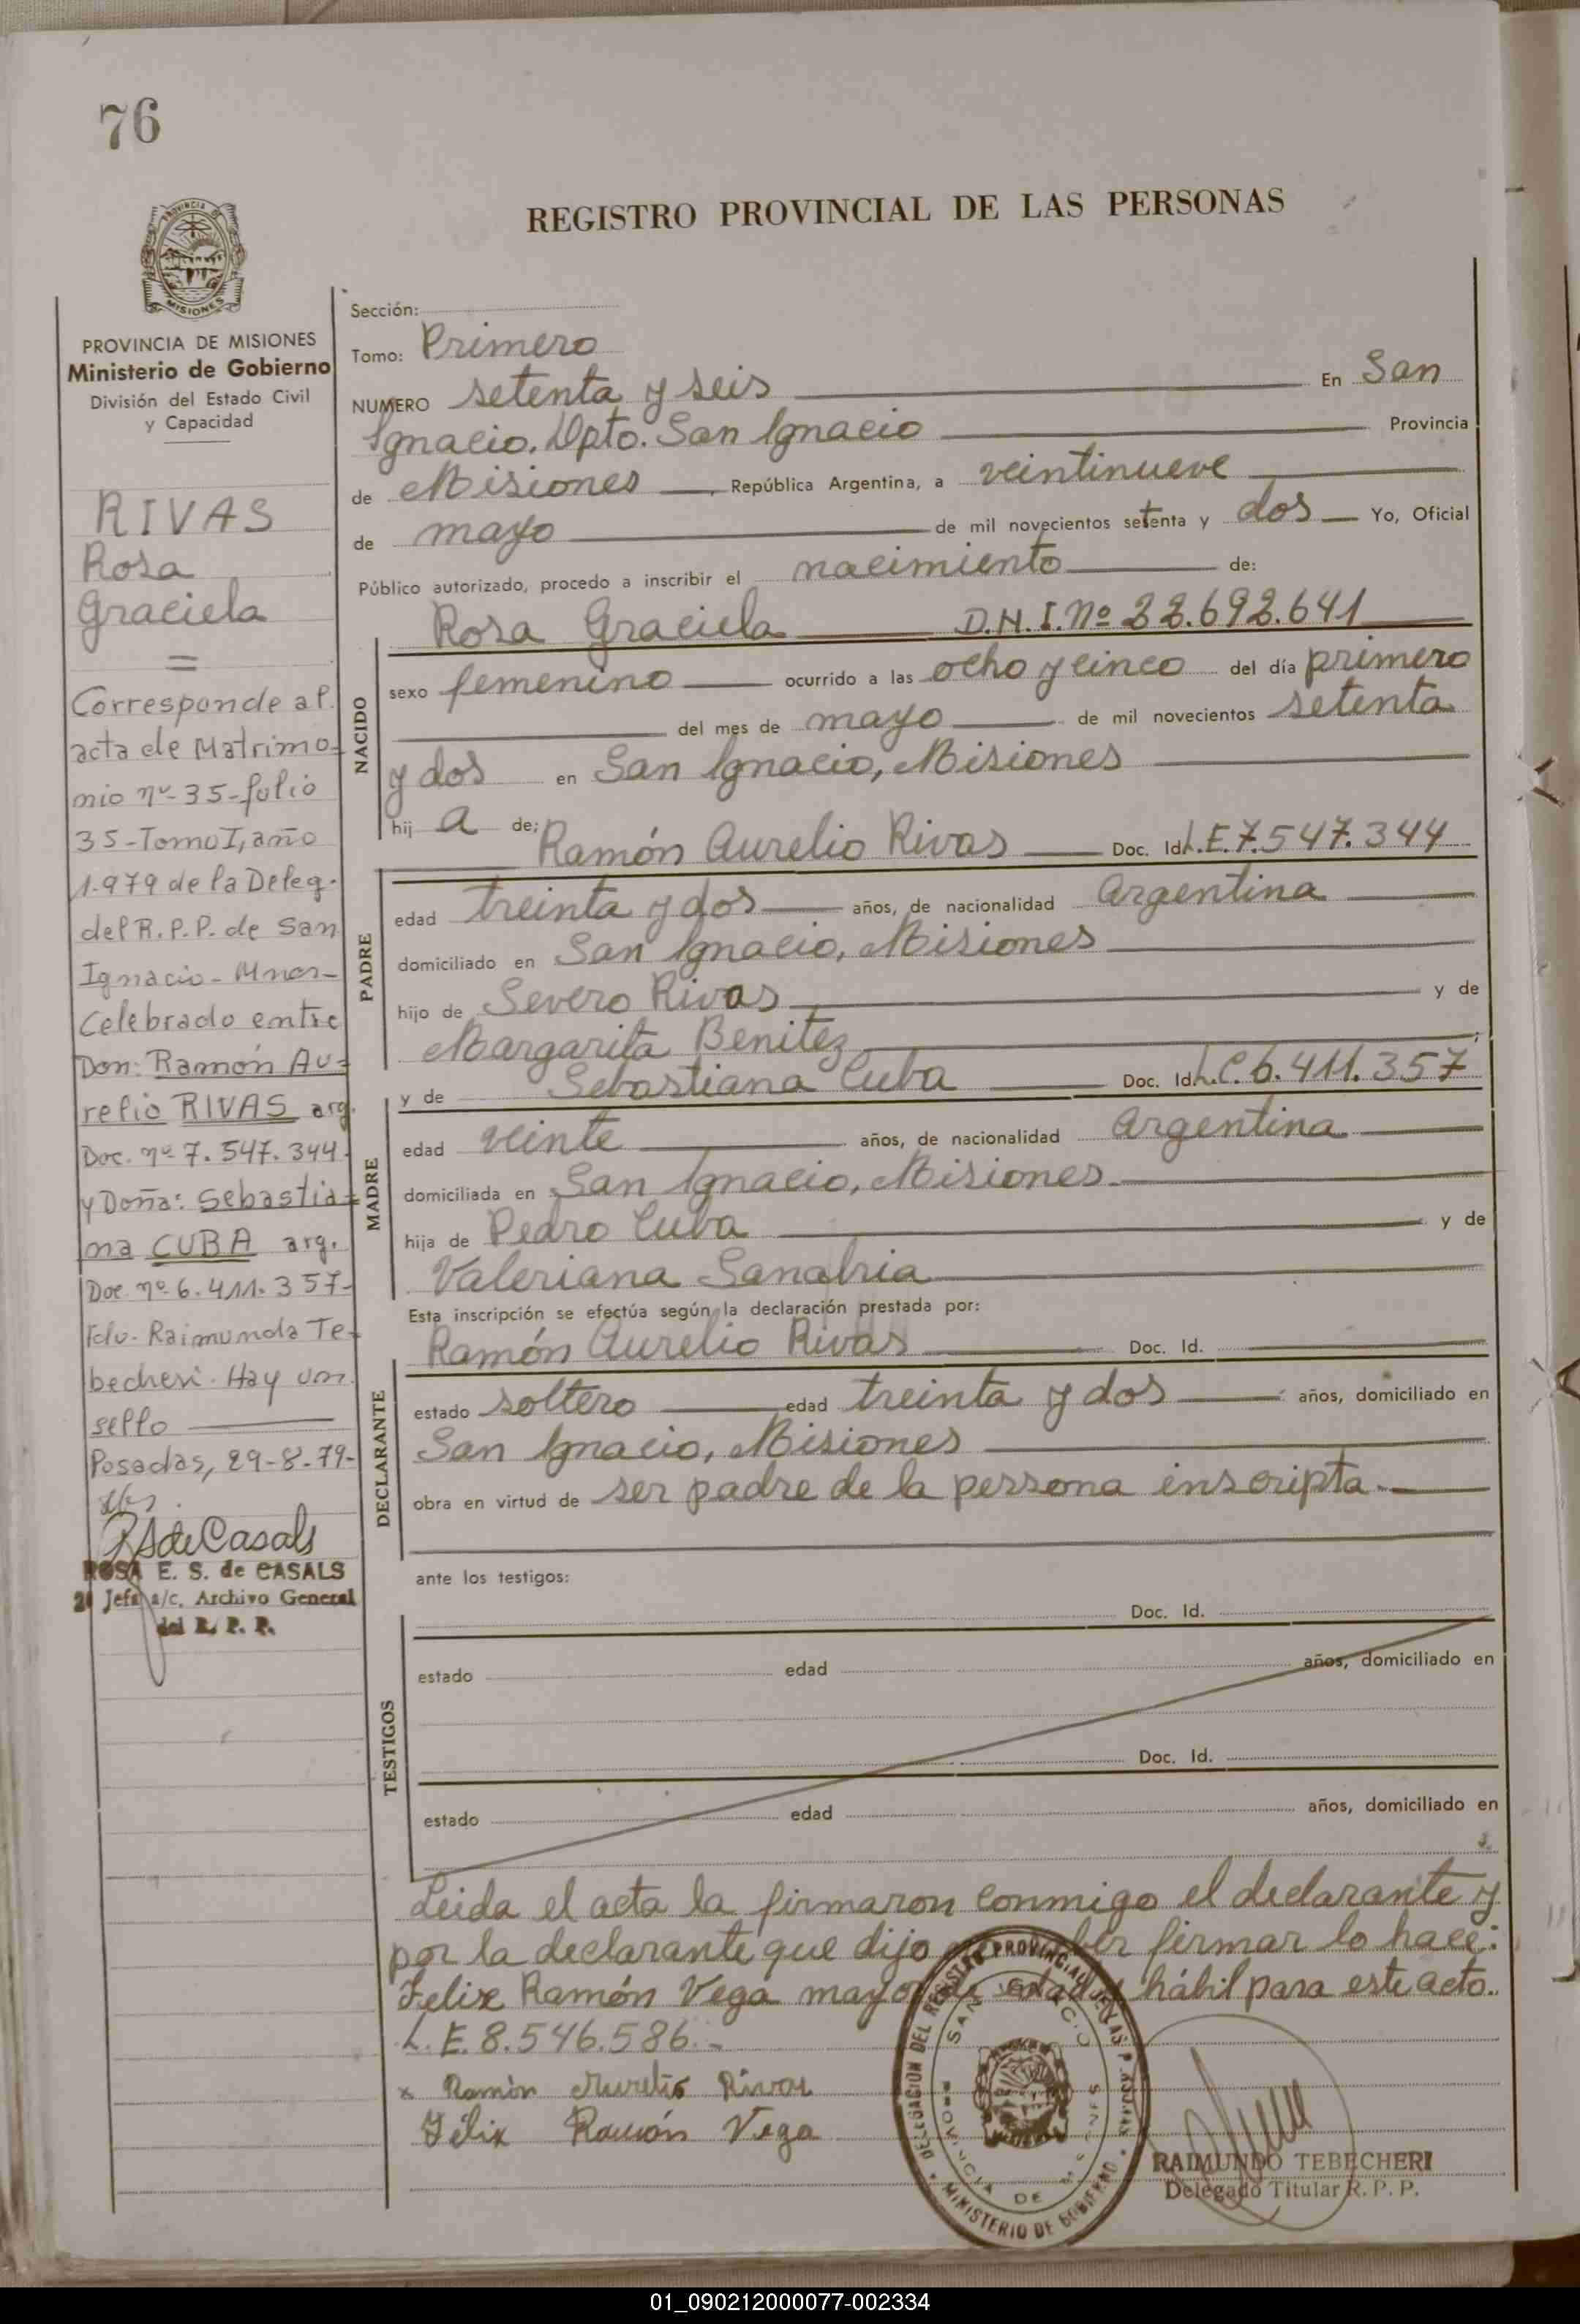 76
PROVINCIA DE
MISIONES
REGISTRO PROVINCIAL DE LAS PERSONAS
PROVINCIA DE MISIONES
Ministerio de Gobierno
División del Estado Civil
y Capacidad
RIVAS
Rosa
Graciela
=
Corresponde al
acta de Matrimo-
nio nº-35-folio
35-Tomo I, año
1.979 de la Deleg.
del R.P.P. de San
Ignacio-Mnes-
Celebrado entre
Don: Ramón Au-
relio RIVAS arg.
Doc. nº 7.547.344.
y Doña: Sebastia-
na CUBA arg.
Doc nº 6.411.357-
Fdo. Raimundo Te-
becheri. Hay un
sello
Posadas, 29-8-79-
RSdeCasals
ROSA E. S. de CASALS
Jefa a/c. Archivo General
del R. P. P.
Sección:
Tomo: Primero
NUMERO setenta y seis En San
Ignacio. Dpto. San Ignacio Provincia
de Misiones, República Argentina, a veintinueve
de mayo de mil novecientos setenta y dos Yo, Oficial
Público autorizado, procedo a inscribir el nacimiento de:
Rosa Graciela D.N.I. Nº 22.692.641
NACIDO
sexo femenino ocurrido a las ocho y cinco del día primero
del mes de mayo de mil novecientos setenta
y dos en San Ignacio, Misiones
hij a de:
Ramón Aurelio Rivas Doc. Id. L.E. 7.547.344
PADRE
edad treinta y dos años, de nacionalidad Argentina
domiciliado en San Ignacio, Misiones
hijo de Severo Rivas y de
Margarita Benitez ;
y de Sebastiana Cuba Doc. Id. L.C. 6.411.357
MADRE
edad veinte años, de nacionalidad Argentina
domiciliada en San Ignacio, Misiones.
hija de Pedro Cuba y de
Valeriana Sanabria
Esta inscripción se efectúa según la declaración prestada por:
Ramón Aurelio Rivas Doc. Id.
DECLARANTE
estado soltero edad treinta y dos años, domiciliado en
San Ignacio, Misiones
obra en virtud de ser padre de la persona inscripta.
ante los testigos:
Doc. Id.
TESTIGOS
estado edad años, domiciliado en
Doc. Id.
estado edad años, domiciliado en
Leida el acta la firmaron conmigo el declarante y
por la declarante que dijo no saber firmar lo hace:
Felix Ramón Vega mayor de edad y hábil para este acto.
L.E. 8.546.586.-
x Ramón Aurelio Rivas
Félix Ramón Vega
DELEGACION DEL REGISTRO PROVINCIAL DE LAS PERSONAS
SAN IGNACIO
PROVINCIA DE MISIONES
MINISTERIO DE GOBIERNO
RAIMUNDO TEBECHERI
Delegado Titular R. P. P.
01_090212000077-002334